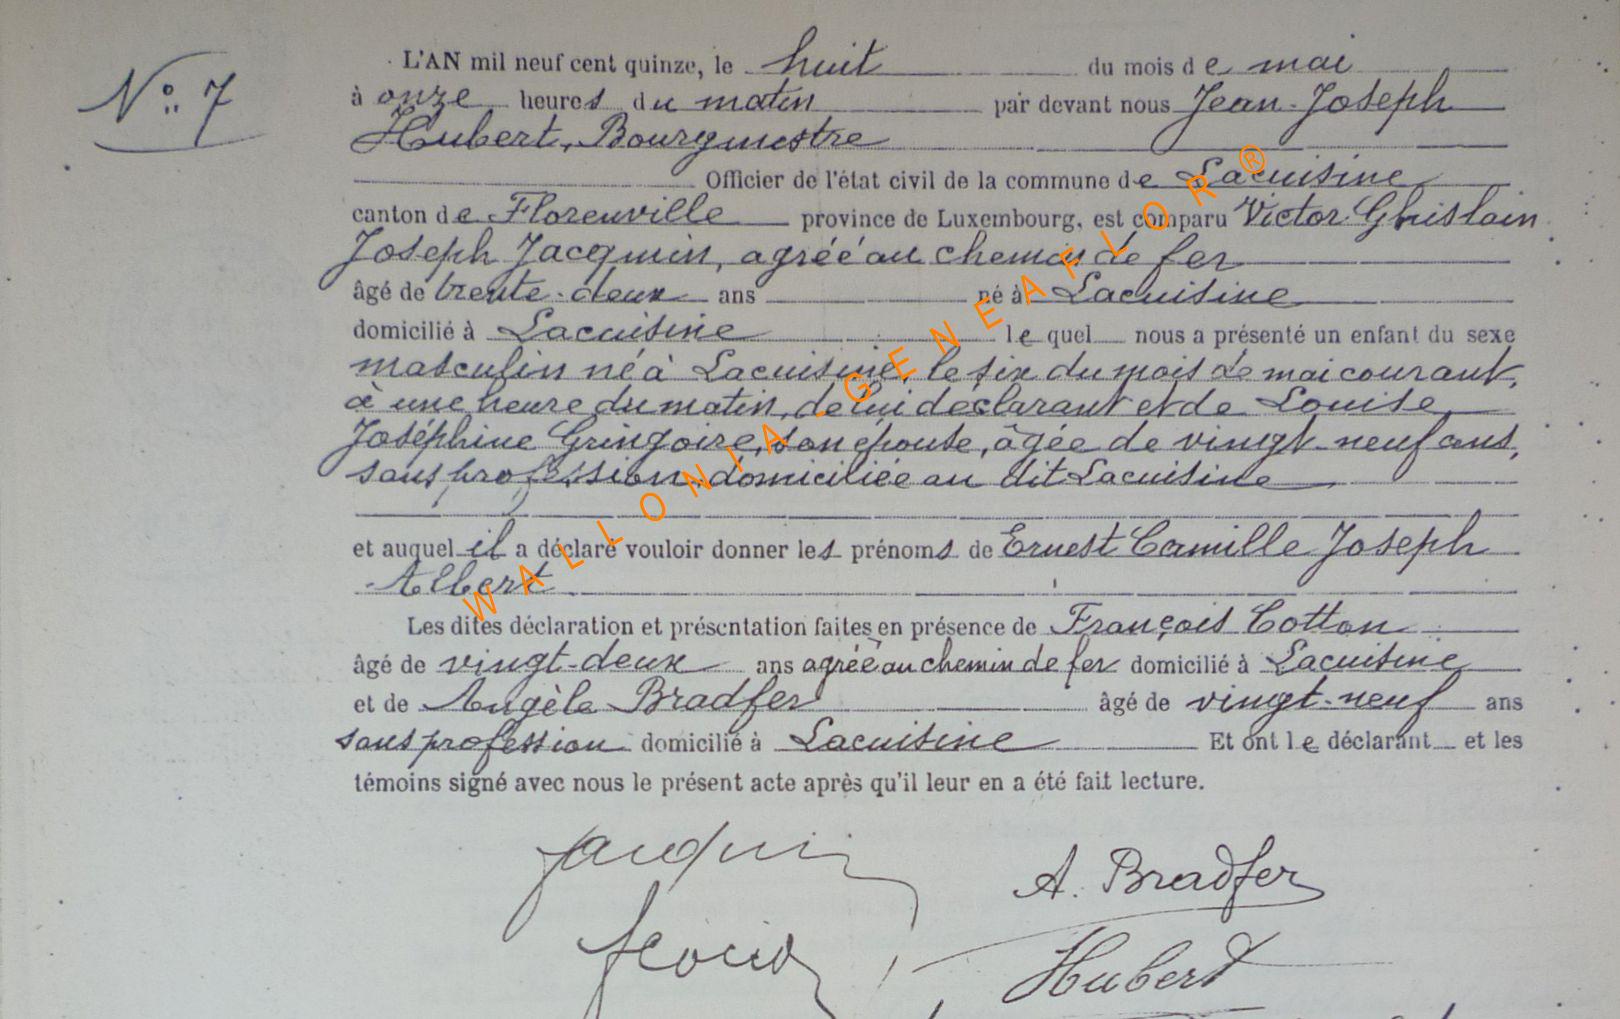 N° 7
L'AN mil neuf cent quinze, le huit du mois de mai
à onze heures du matin par devant nous Jean-Joseph
Hubert, Bourgmestre
Officier de l'état civil de la commune de Lacuisine
canton de Florenville province de Luxembourg, est comparu Victor Ghislain
Joseph Jacqmin, agréé au chemin de fer
âgé de trente-deux ans né à Lacuisine
domicilié à Lacuisine le quel nous a présenté un enfant du sexe
masculin né à Lacuisine, le six du mois de mai courant,
à une heure du matin, de lui déclarant et de Louise
Joséphine Gringoire, son épouse, âgée de vingt-neuf ans,
sans profession, domiciliée au dit Lacuisine
et auquel il a déclaré vouloir donner les prénoms de Ernest Camille Joseph
Albert
Les dites déclaration et présentation faites en présence de François Cotton
âgé de vingt-deux ans agréé au chemin de fer domicilié à Lacuisine
et de Angèle Bradfer âgé de vingt-neuf ans
sans profession domicilié à Lacuisine Et ont le déclarant et les
témoins signé avec nous le présent acte après qu'il leur en a été fait lecture.
Jacqmin
A. Bradfer
Hubert
WALLONIA-GENEAFLOR®